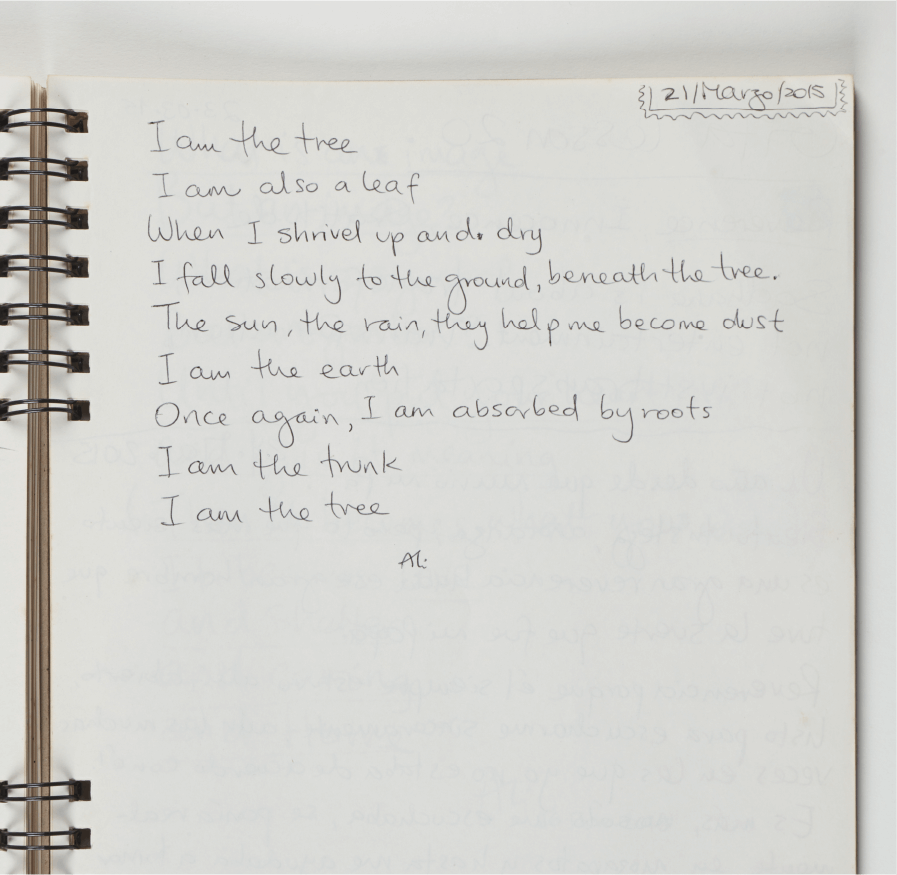 21/Marzo/2015
I am the tree
I am also a leaf
When I shrivel up and. dry
I fall slowly to the ground, beneath the tree.
The sun, the rain, they help me become dust
I am the earth
Once again, I am absorbed by roots
I am the trunk
I am the tree
Ali